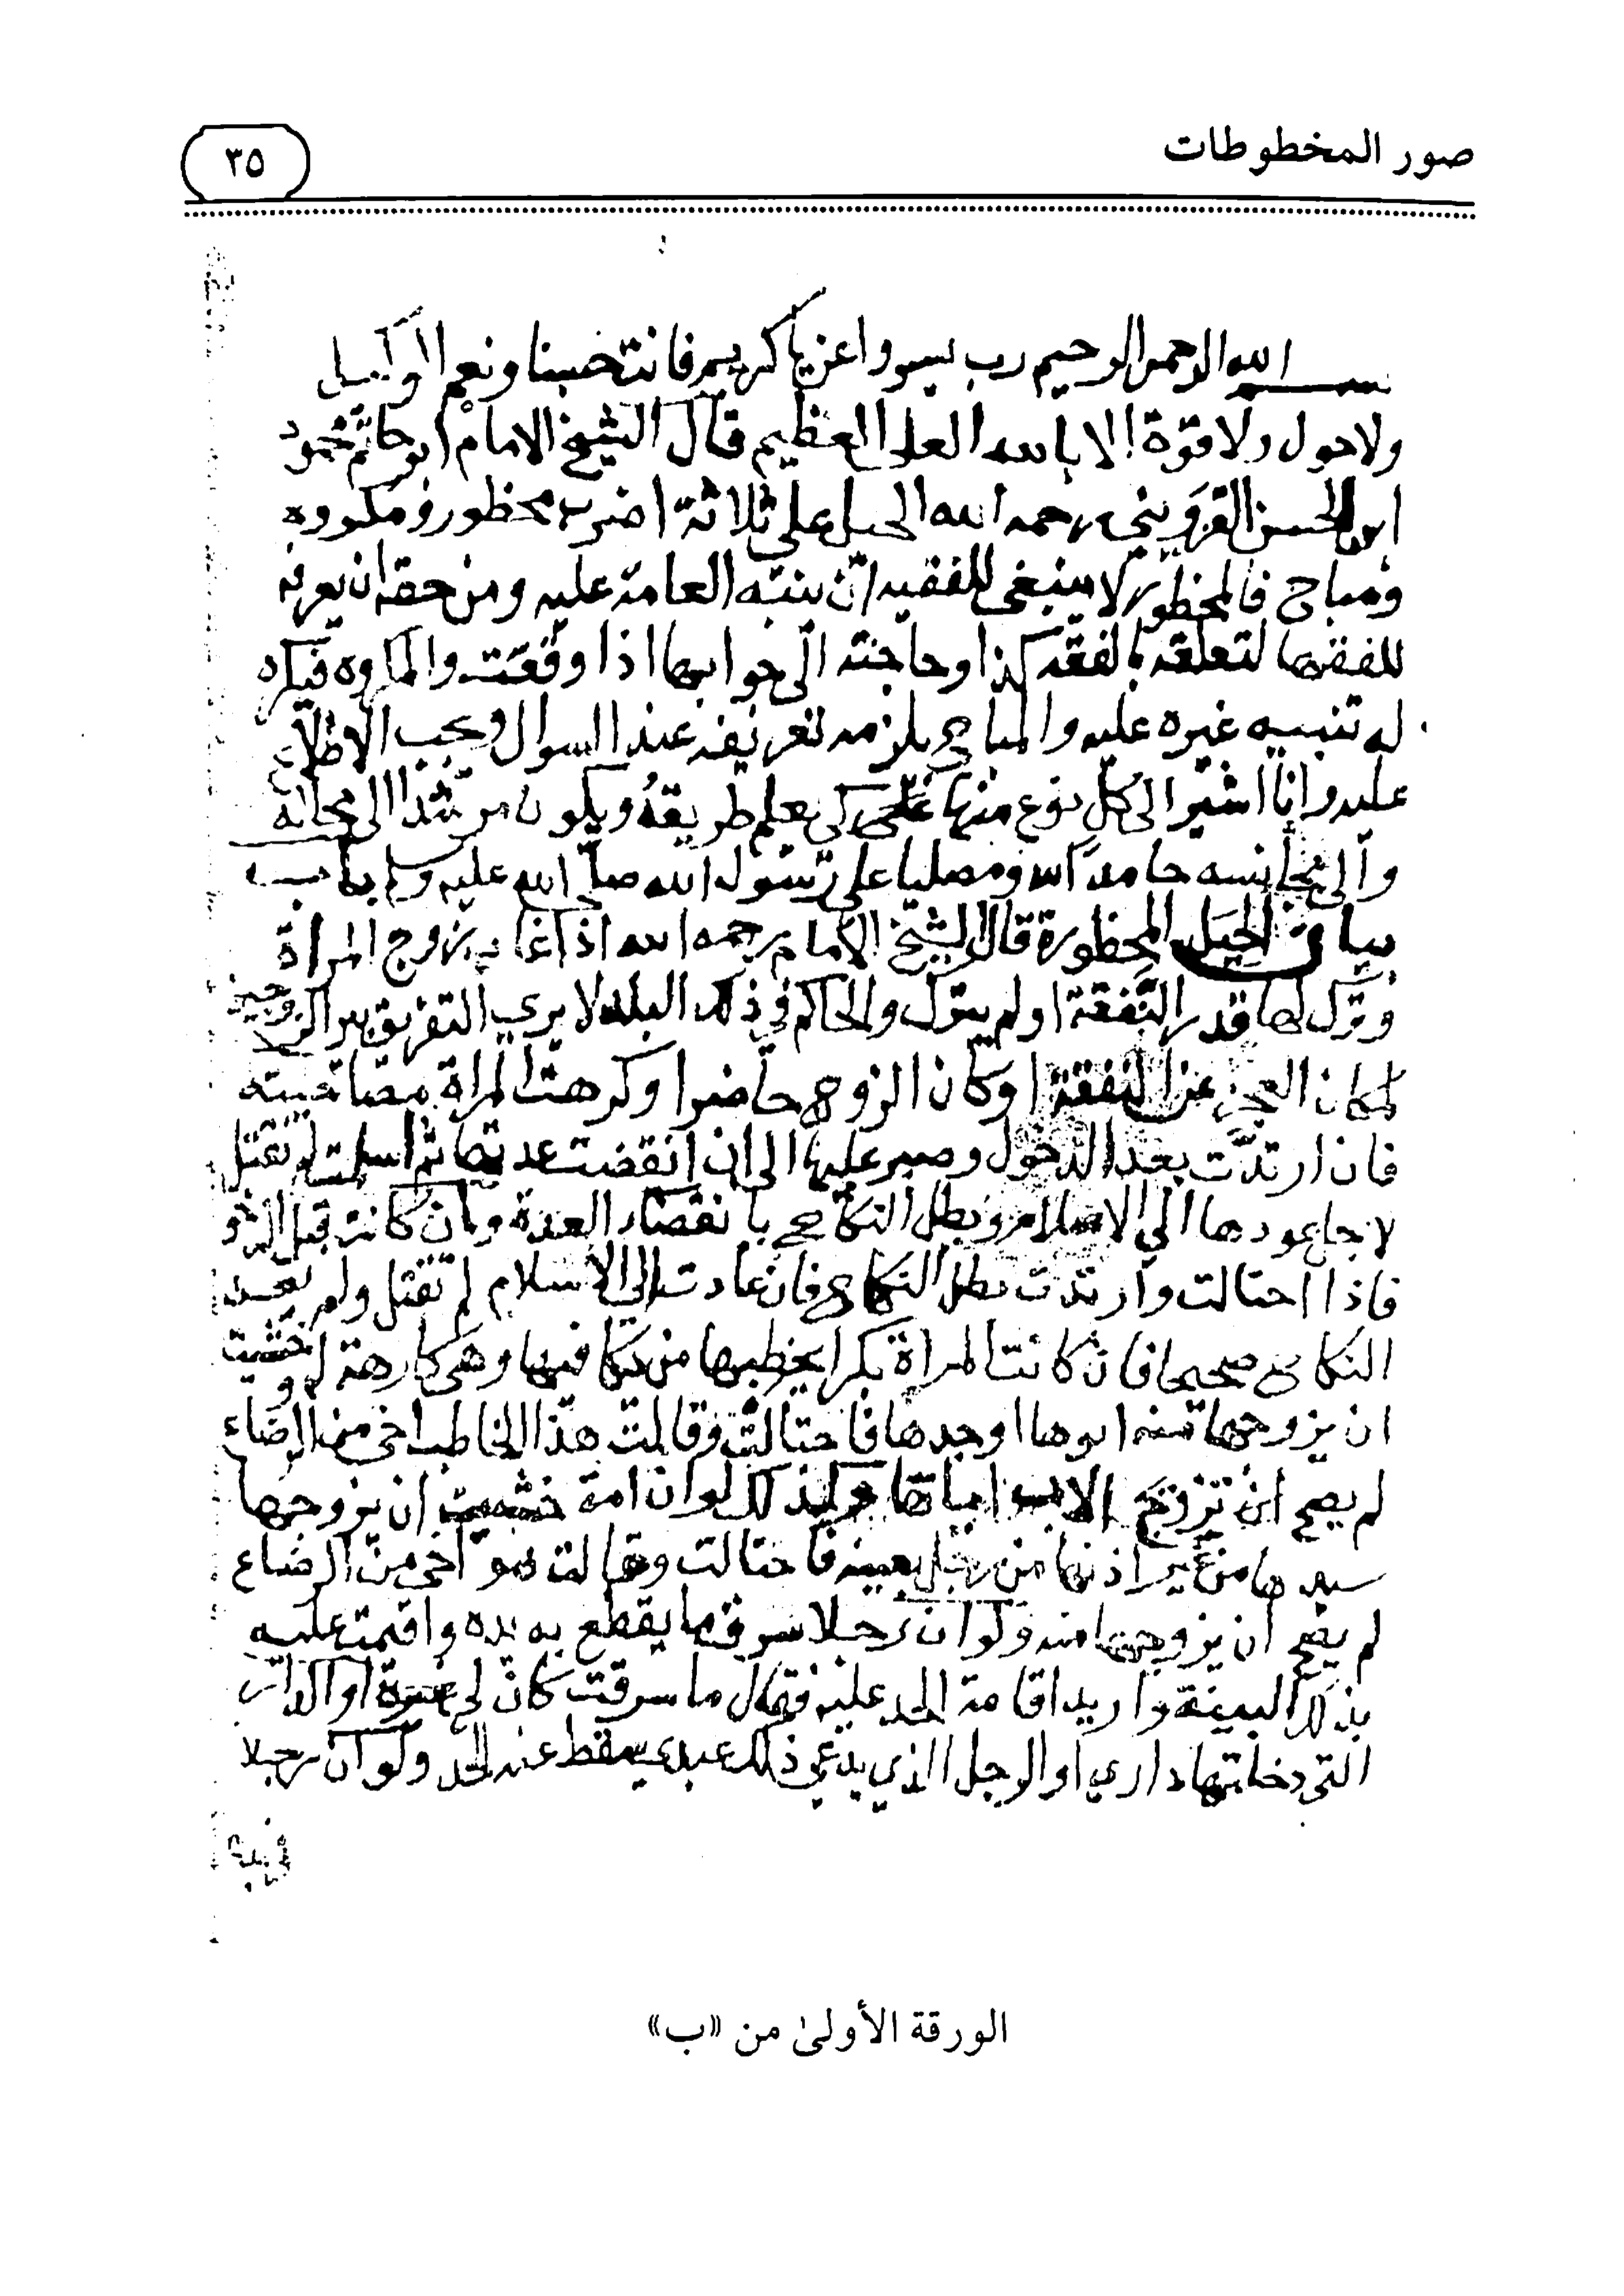 صور المخطوطات
٣٥
بسم الله الرحمن الرحيم رب يسر واعن يا كريم فانت حسبنا ونعم الوكيل
ولا حول ولا قوة الا بالله العلي العظيم قال الشيخ الامام ابو حاتم محمود
ابن الحسن القزويني رحمه الله الحيل على ثلاثة اضرب محظور ومكروه
ومباح فالمحظور لا ينبغي للفقيه ان ينبه العامة عليه ومن حقه ان يعرفه
للفقها لتعلقه بالفقه كذا وحاجته الى جوابها اذا وقعت والمكروه فيكره
له تنبيه غيره عليه والمباح يلزمه تعريفه عند السوال ويجب الاطلاع
عليه وانا اشير الى كل نوع منها كي يعلم طريقه ويكون مرشدا الى محاله
والى مجانسه حامدا لله ومصليا على رسول الله صلى الله عليه وسلم باب
بيان الحيل المحظورة قال الشيخ الامام رحمه الله اذا غاب زوج المراة
وترك لها قدر النفقة او لم يترك والحاكم في ذلك البلد لا يرى التفريق بين الزوجين
لمكان العجز عن النفقة او كان الزوج حاضرا وكرهت المراة مصاحبته
فان ارتدت بعد الدخول وصبر عليها الى ان انقضت عدتها ثم اسلمت لم تقتل
لاجل عودها الى الاسلام وبطل النكاح بانقضاء العدة وان كانت قبل الدخول
فاذا احتالت وارتدت بطل النكاح فان عادت الى الاسلام لم تقتل ولم يعد
النكاح صحيحا فان كانت المراة بكرا يخطبها من يكافيها وهي كارهة له وخشيت
ان يزوجها منه ابوها او جدها فاحتالت وقالت هذا الخاطب اخي من الرضاع
لم يصح ان تزوج الاب اياها وكذلك لو ان امة خشيت ان يزوجها
سيدها من غير اذنها من رجل بعينه فاحتالت وقالت هو اخي من الرضاع
لم يصح ان يزوجها منه ولو ان رجلا سرق ما يقطع به يده واقيمت عليه
بذلك البينة واريد اقامة الحد عليه فقال ما سرقت كان لي او الدار
التي دخلتها داري او الرجل الذي يدعي ذلك عبدي سقط عنه الحد ولو ان رجلا
الورقة الأولى من «ب»